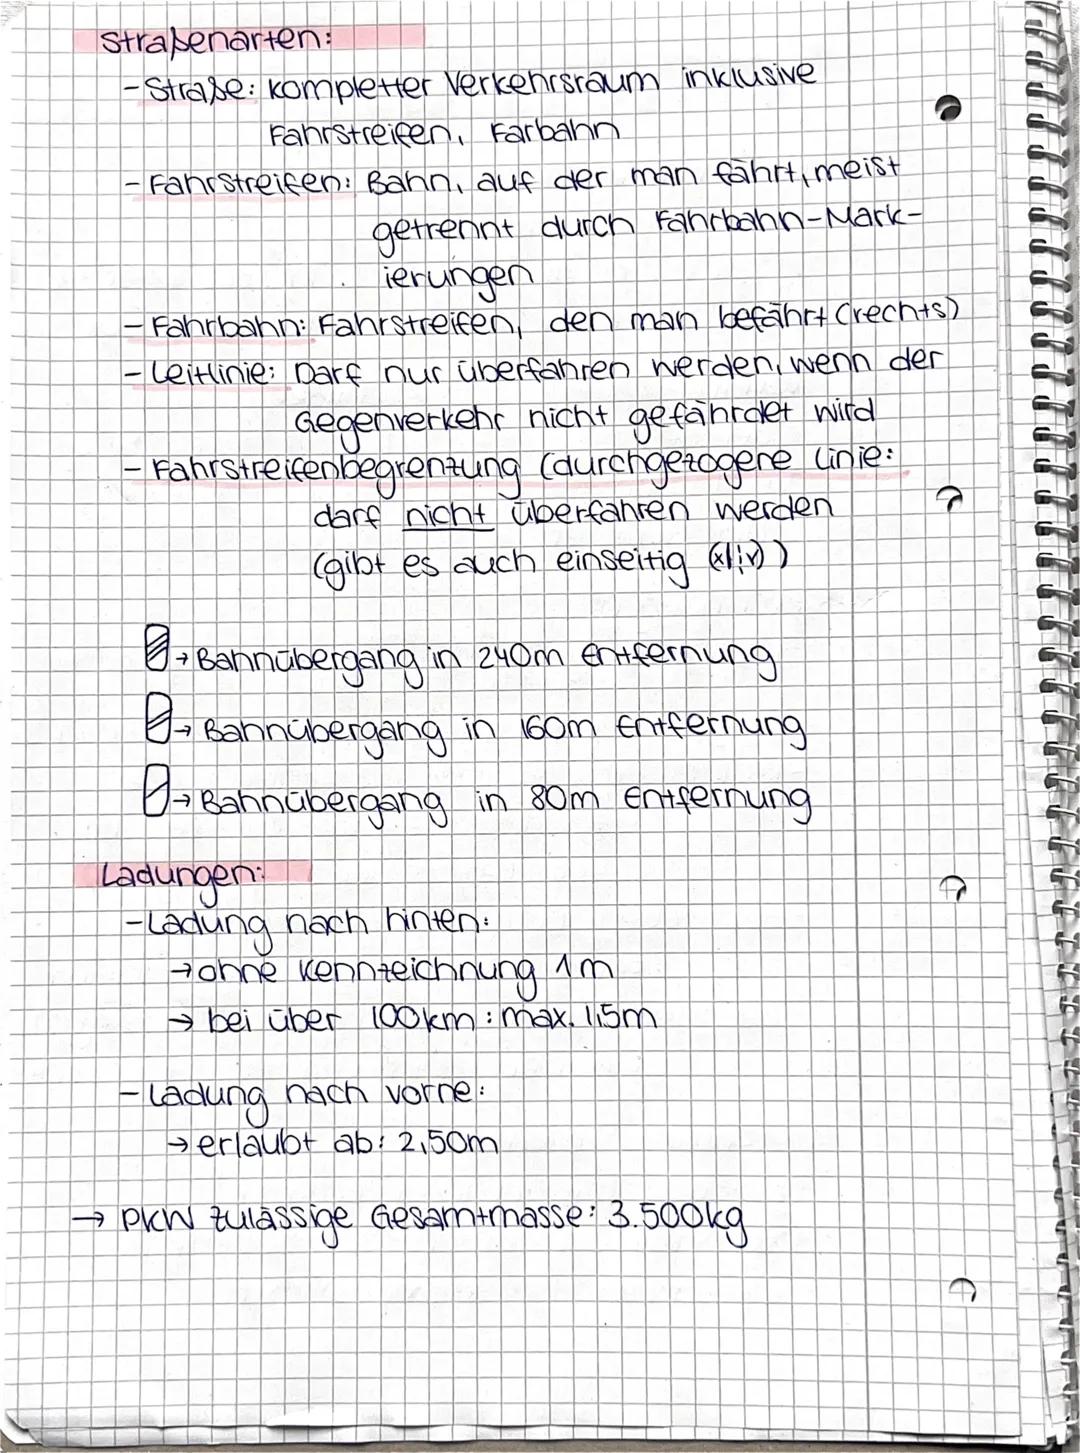 Straßenarten:
- Straße: kompletter Verkehrsraum inklusive
Fahrstreifen, Farbahn
- Fahrstreifen: Bahn, auf der man fährt, meist
getrennt durch Fahrbahn-Mark-
ierungen
- Fahrbahn: Fahrstreifen, den man befährt (rechts)
- Leitlinie: Darf nur überfahren werden, wenn der
Gegenverkehr nicht gefährdet wird
- Fahrstreifenbegrenzung (durchgezogene Linie:
darf nicht überfahren werden
(gibt es auch einseitig (x|¦v))
→ Bahnübergang in 240m Entfernung
→ Bahnübergang in 160m Entfernung
→ Bahnübergang in 80m Entfernung
Ladungen:
- Ladung nach hinten:
→ ohne Kennzeichnung 1m
→ bei über 100km: max. 1,5m
- Ladung nach vorne:
→ erlaubt ab: 2,50m
→ PKW zulässige Gesamtmasse: 3.500kg